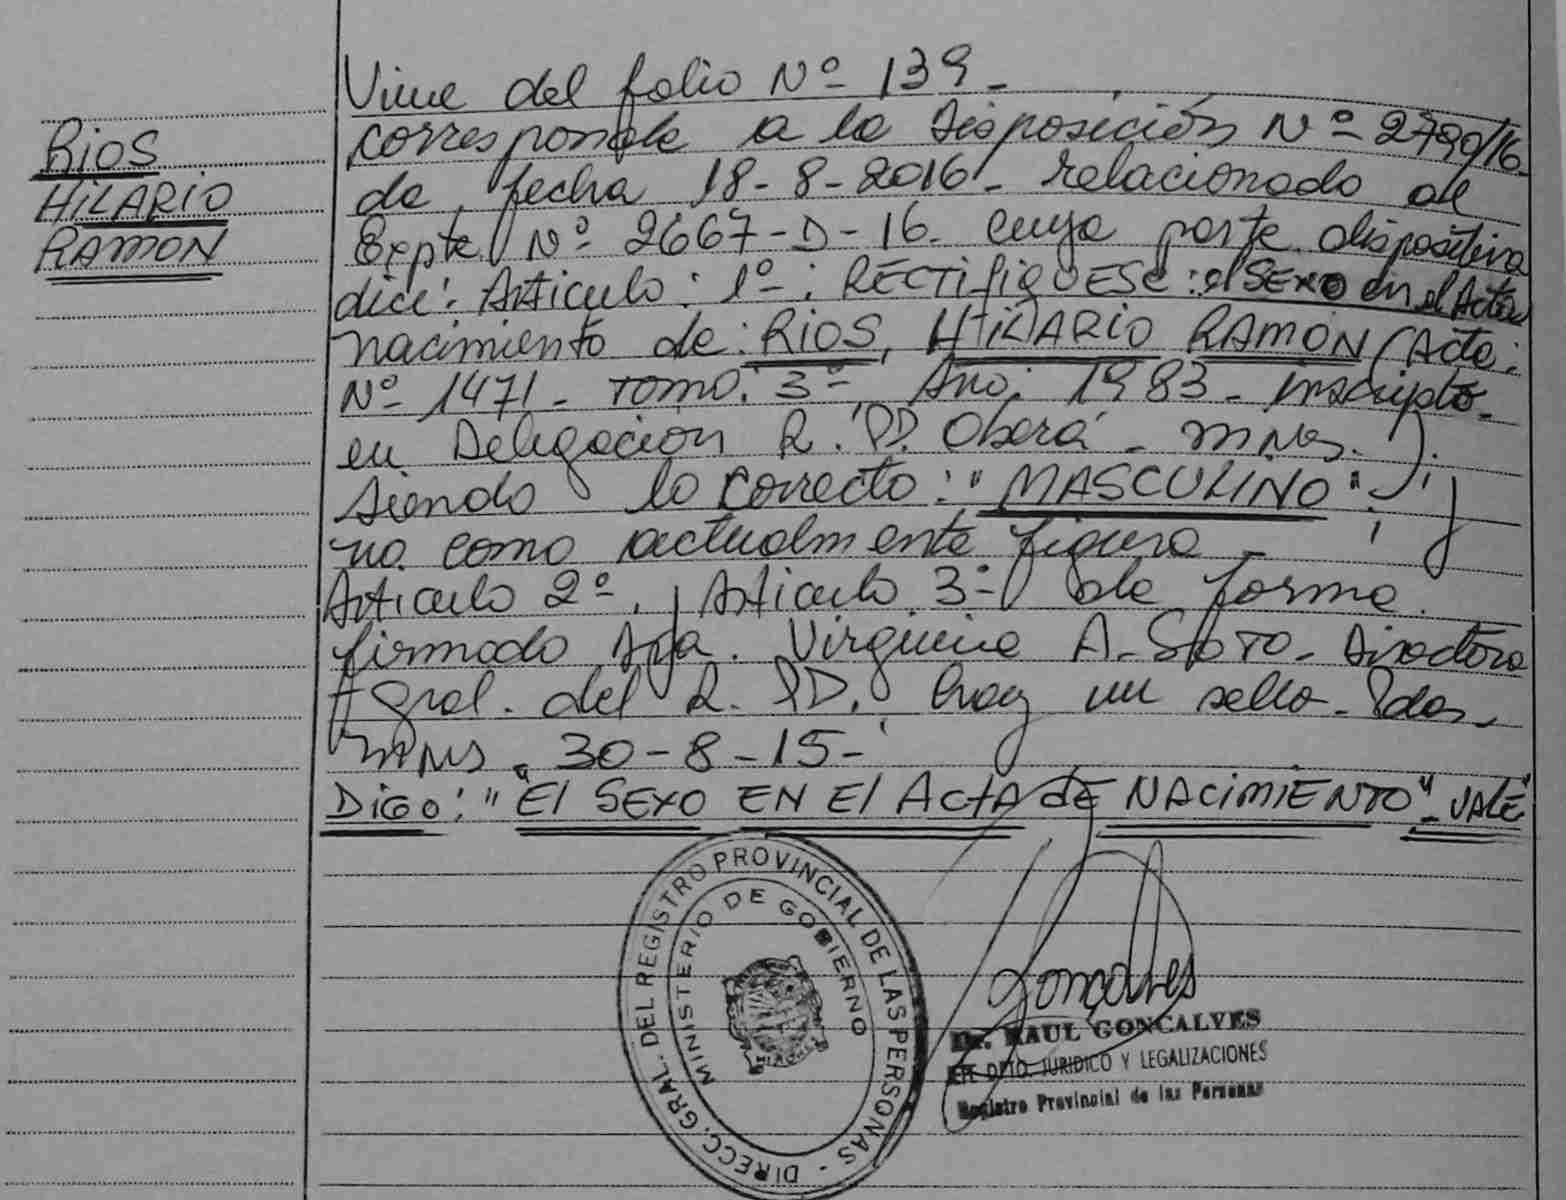 Viene del folio Nº 139-
RIOS
HILARIO
RAMON
corresponde a la Disposición Nº 2790/16
de fecha 18-8-2016- relacionado al
Expte Nº 2667-D-16- cuya parte dispositiva
dice: Articulo: 1º: RECTIFIQUESE: el SEXO en el Acta
nacimiento de: RIOS, HILARIO RAMON (Acta:
Nº 1471- Tomo: 3º- Año: 1983- Inscripto-
en Delegación R. PP. Oberá- MNES.)
siendo lo correcto: "MASCULINO"; y
no como actualmente figura-
Articulo 2º, Articulo 3º de forma.
firmado Virginia A. SOTO- Directora
Gral. del R. PP. hay un sello- Pdas-
MNS. 30-8-15-
Digo: "El SEXO EN El ActA de NACIMIENTO" VALE
DIRECC. GRAL. DEL REGISTRO PROVINCIAL DE LAS PERSONAS -
MINISTERIO DE GOBIERNO
MISIONES
Goncalves
Dr. RAUL GONCALVES
DPTO. JURIDICO Y LEGALIZACIONES
Registro Provincial de las Personas